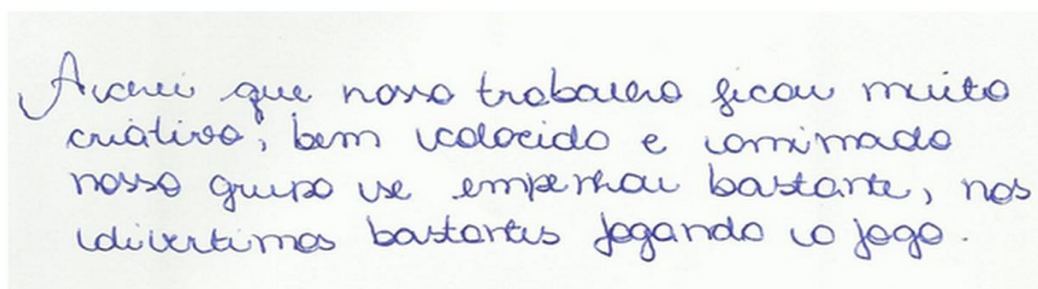 Achei que nosso trabalho ficou muito
criativo, bem colorido e animado
nosso grupo se empenhou bastante, nos
divertimos bastantes jogando o jogo.